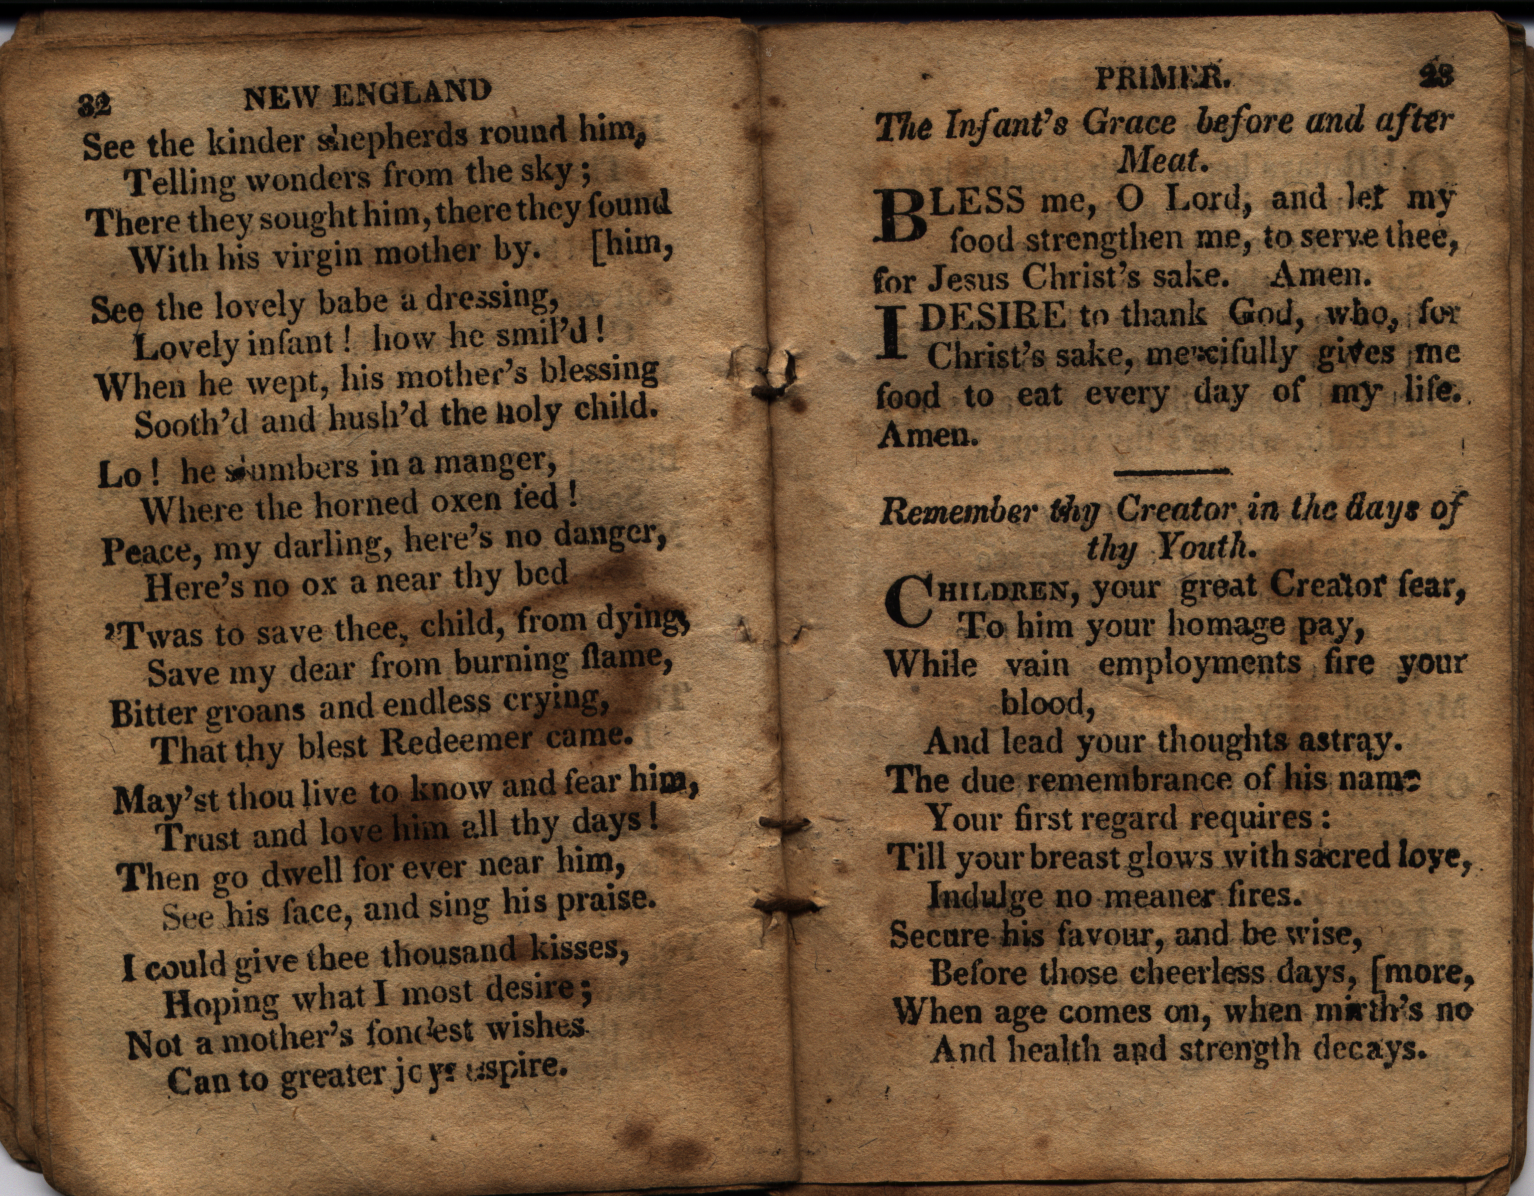 32 NEW ENGLAND
See the kinder shepherds round him,
Telling wonders from the sky;
There they sought him, there they found
With his virgin mother by. [him,
See the lovely babe a dressing,
Lovely infant! how he smil'd!
When he wept, his mother's blessing
Sooth'd and hush'd the holy child.
Lo! he slumbers in a manger,
Where the horned oxen fed!
Peace, my darling, here's no danger,
Here's no ox a near thy bed
'Twas to save thee, child, from dying,
Save my dear from burning flame,
Bitter groans and endless crying,
That thy blest Redeemer came.
May'st thou live to know and fear him,
Trust and love him all thy days!
Then go dwell for ever near him,
See his face, and sing his praise.
I could give thee thousand kisses,
Hoping what I most desire;
Not a mother's fondest wishes
Can to greater joys aspire.
PRIMER. 23
The Infant's Grace before and after
Meat.
BLESS me, O Lord, and let my
food strengthen me, to serve thee,
for Jesus Christ's sake. Amen.
I DESIRE to thank God, who, for
Christ's sake, mercifully gives me
food to eat every day of my life.
Amen.
Remember thy Creator in the days of
thy Youth.
CHILDREN, your great Creator fear,
To him your homage pay,
While vain employments fire your
blood,
And lead your thoughts astray.
The due remembrance of his name
Your first regard requires:
Till your breast glows with sacred love,
Indulge no meaner fires.
Secure his favour, and be wise,
Before those cheerless days, [more,
When age comes on, when mirth's no
And health and strength decays.